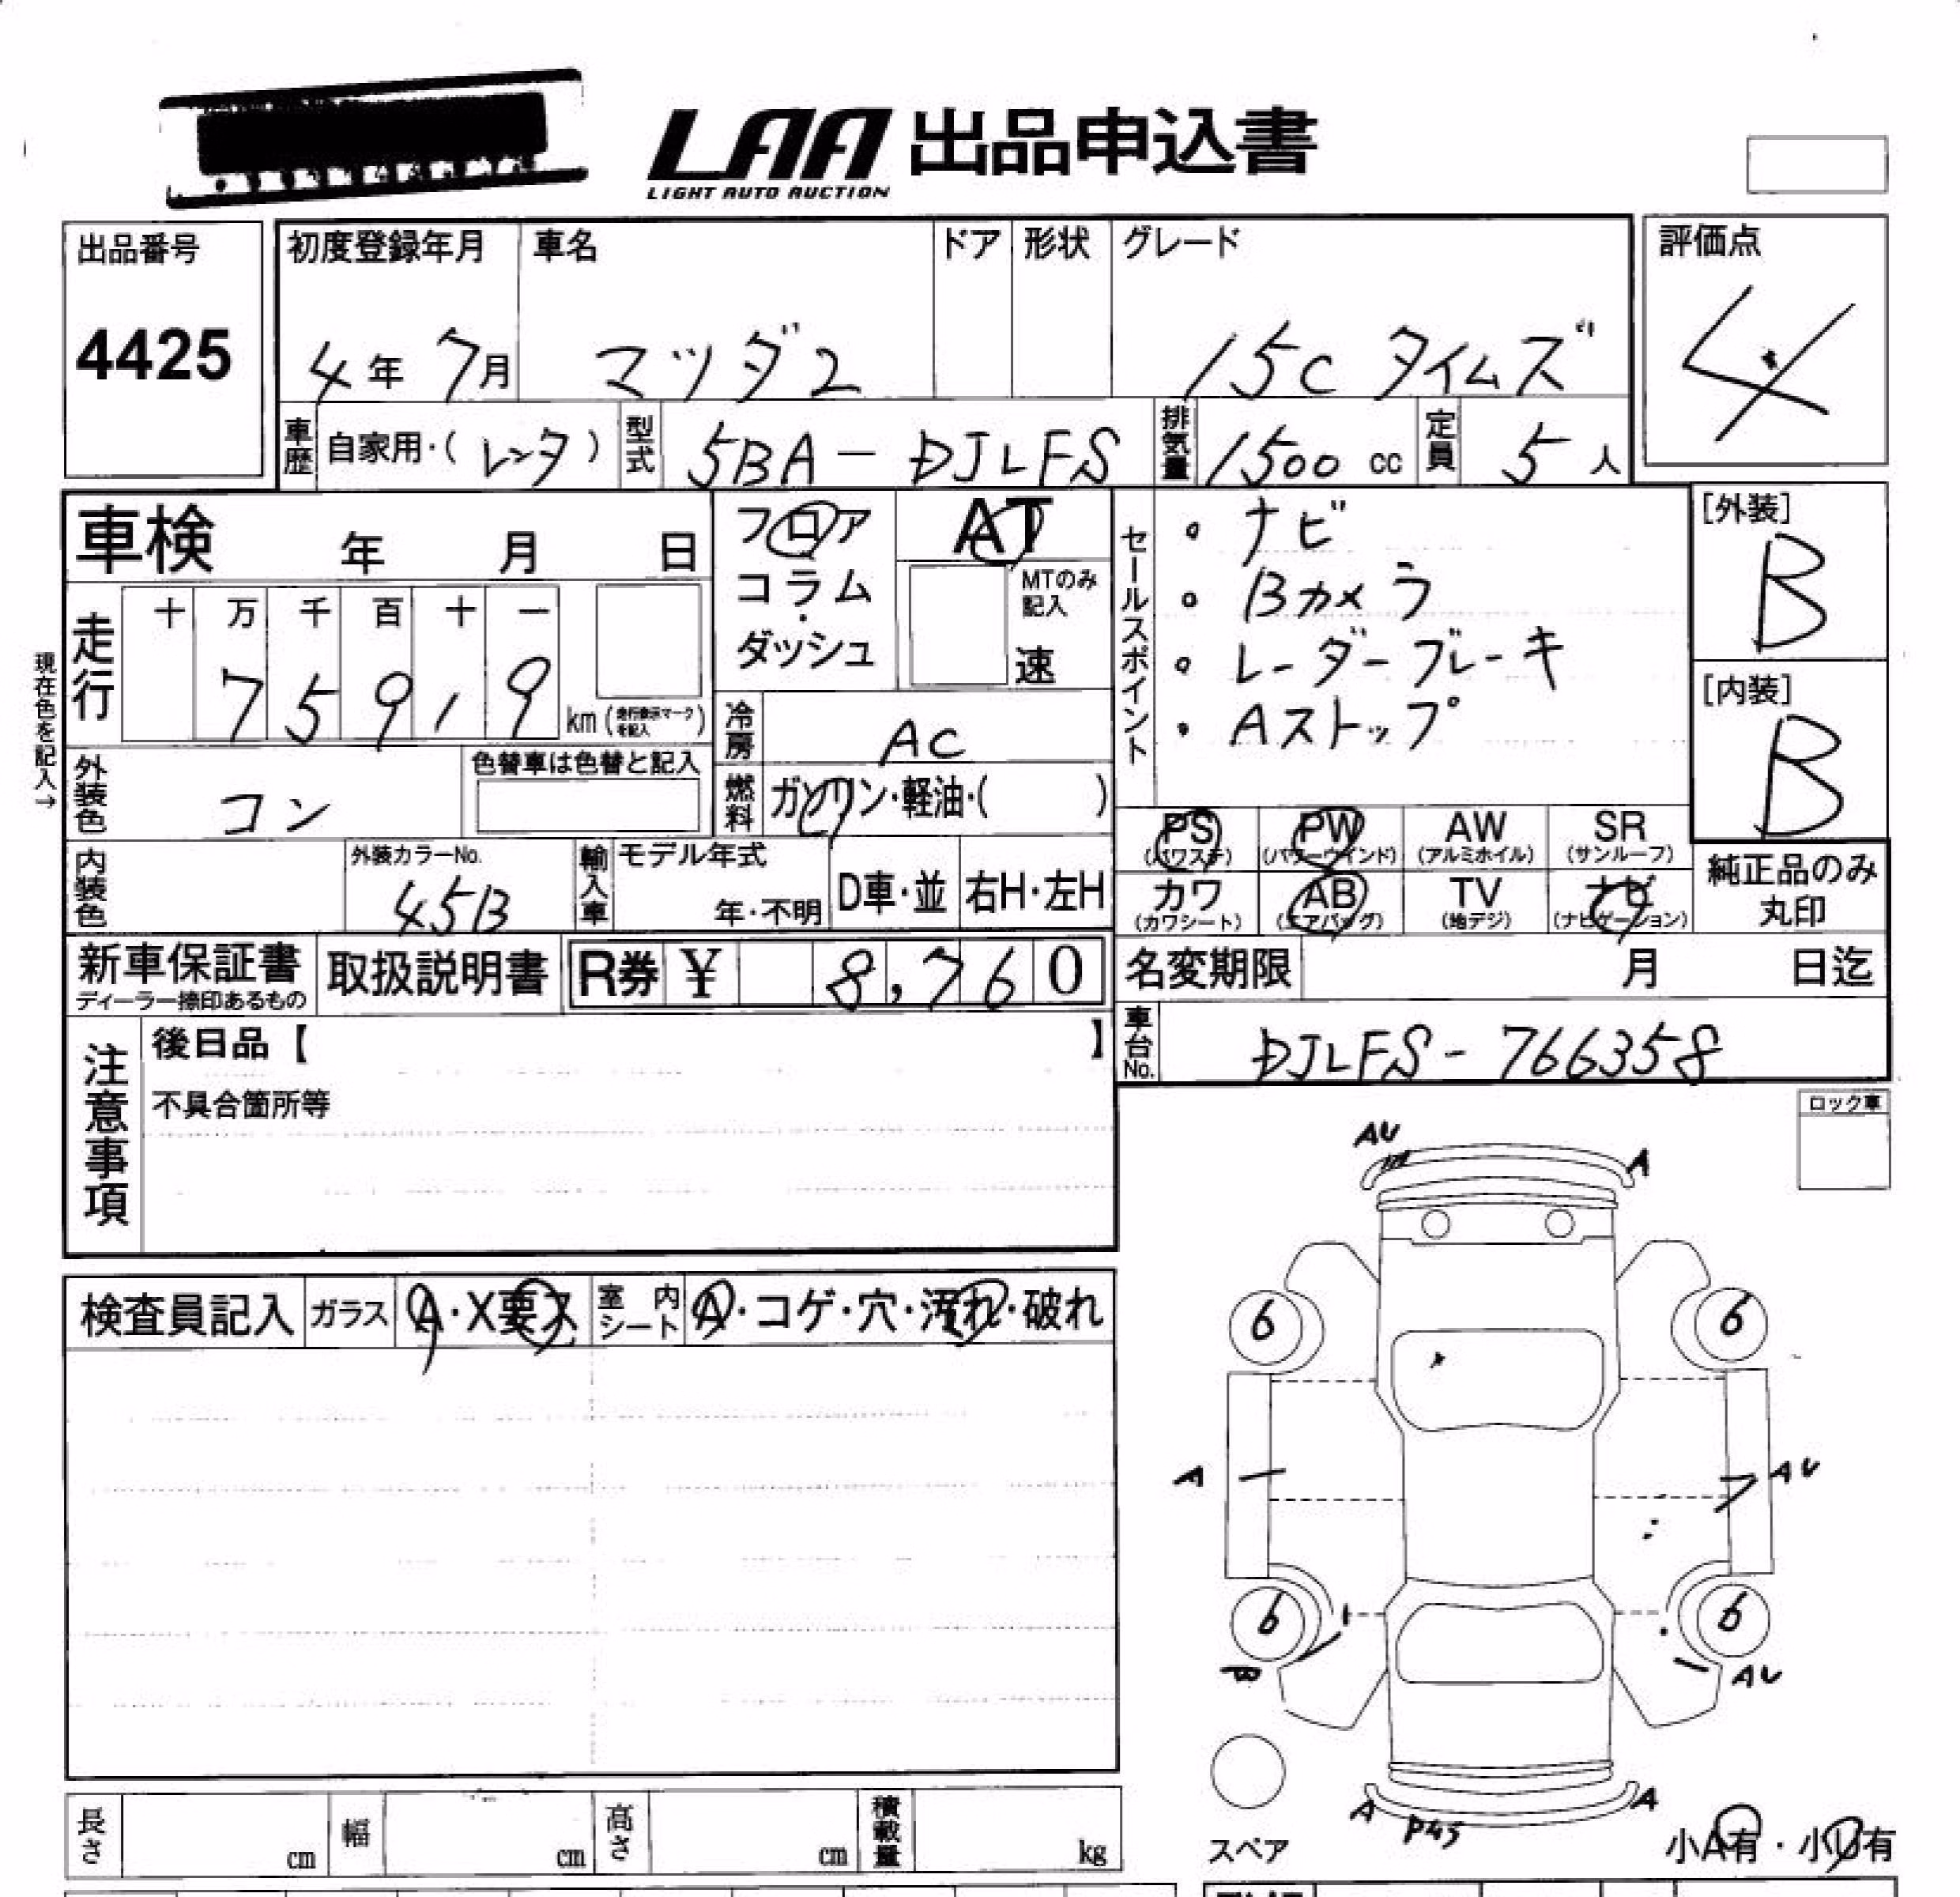 LAA 出品申込書
LIGHT AUTO AUCTION
出品番号
4425
初度登録年月
4年 7月
車名
マツダ2
ドア
形状
グレード
15C タイムズ
評価点
4
車歴
自家用・( レンタ )
型式
5BA-DJLFS
排気量
1500 cc
定員
5 人
車検 年 月 日
フロア
コラム
・
ダッシュ
AT
MTのみ
記入
速
セールスポイント
・ナビ
・Bカメラ
・レーダーブレーキ
・Aストップ
[外装]
B
[内装]
B
現在色を記入→
走行
十 万 千 百 十 一
7 5 9 1 9
km (走行表示マークを記入)
冷房
AC
外装色
コン
色替車は色替と記入
燃料
ガソリン・軽油・( )
PS
(パワステ)
PW
(パワーウインド)
AW
(アルミホイル)
SR
(サンルーフ)
カワ
(カワシート)
AB
(エアバッグ)
TV
(地デジ)
ナビ
(ナビゲーション)
純正品のみ
丸印
内装色
外装カラーNo.
45B
輸入車
モデル年式
年・不明
D車・並
右H・左H
新車保証書
ディーラー捺印あるもの
取扱説明書
R券 ¥ 8,760
名変期限 月 日迄
車台No.
DJLFS-766358
注意事項
後日品【 】
不具合箇所等
ロック車
AU
A
検査員記入
ガラス
A・X要ス
室内シート
A・コゲ・穴・汚れ・破れ
6
6
A
AU
6
6
B
AU
A
P45
A
スペア
小A有・小U有
長さ cm
幅 cm
高さ cm
積載量 kg